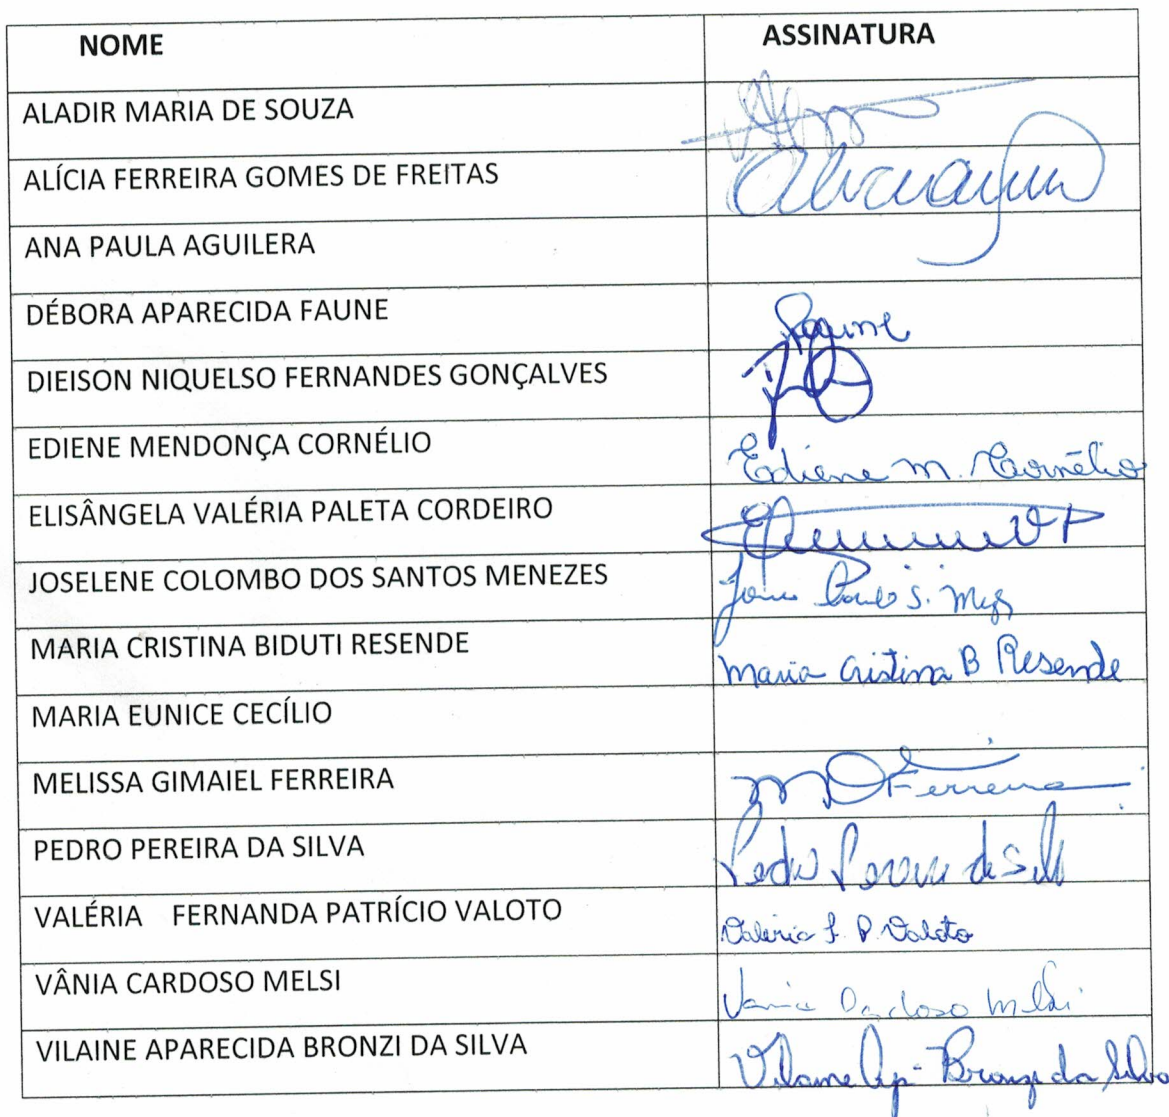 NOME ASSINATURA
ALADIR MARIA DE SOUZA
ALÍCIA FERREIRA GOMES DE FREITAS
ANA PAULA AGUILERA
DÉBORA APARECIDA FAUNE Faune
DIEISON NIQUELSO FERNANDES GONÇALVES
EDIENE MENDONÇA CORNÉLIO Ediene M. Cornélio
ELISÂNGELA VALÉRIA PALETA CORDEIRO
JOSELENE COLOMBO DOS SANTOS MENEZES
MARIA CRISTINA BIDUTI RESENDE Maria Cristina B Resende
MARIA EUNICE CECÍLIO
MELISSA GIMAIEL FERREIRA Ferreira
PEDRO PEREIRA DA SILVA Pedro Pereira da Silva
VALÉRIA FERNANDA PATRÍCIO VALOTO Valéria F. P. Valoto
VÂNIA CARDOSO MELSI Vania Cardoso Melsi
VILAINE APARECIDA BRONZI DA SILVA Vilaine Ap. Bronzi da Silva